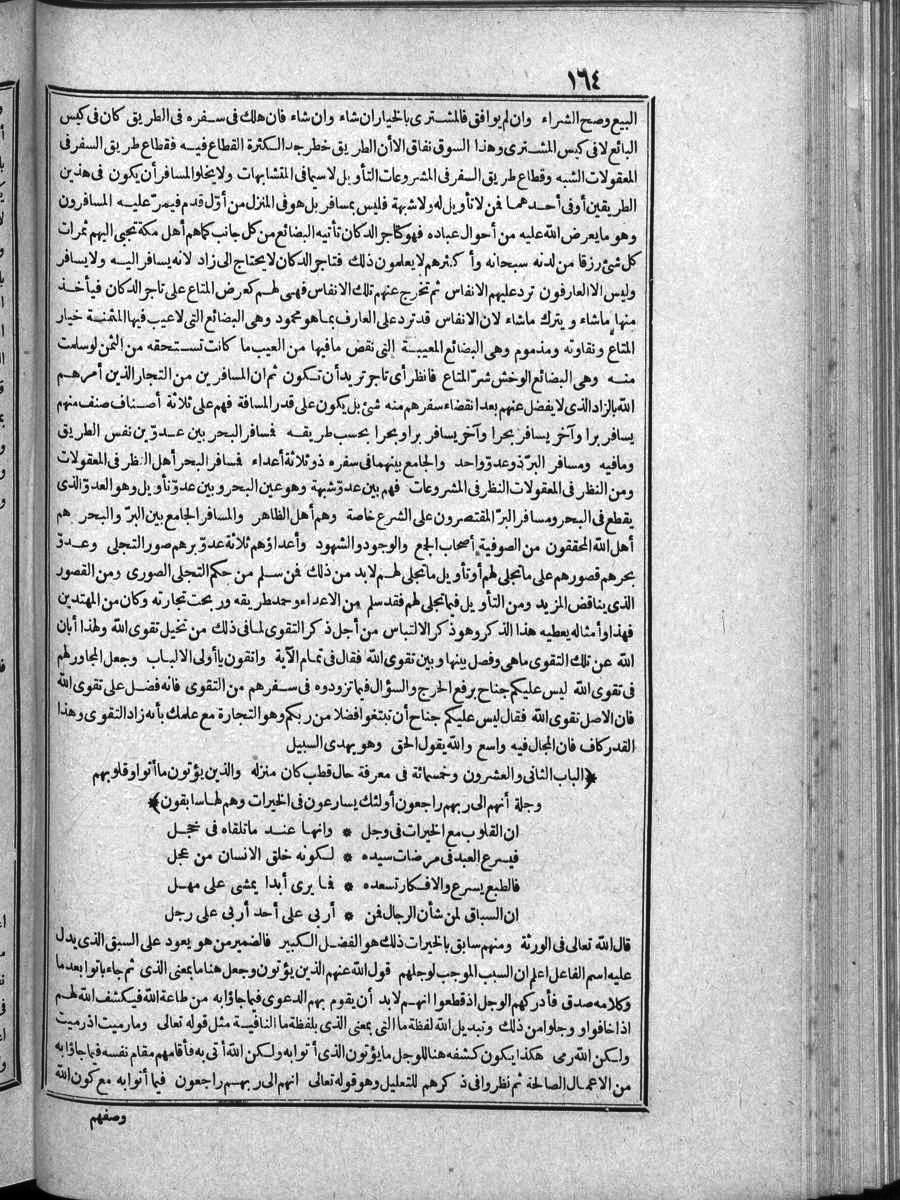 ١٦٤
البيع وصح الشراء وان لم يوافق فالمشترى بالخيار ان شاء وان شاء فان هلك فى سفره فى الطريق كان فى كيس
البائع لا فى كيس المشترى وهذا السوق نفاق الا أن الطريق خطر جدا لكثرة القطاع فيه فقطاع طريق السفر فى
المعقولات الشبه وقطاع طريق السفر فى المشروعات التأويل لا سيما فى المتشابهات ولا يخلو المسافر أن يكون فى هذين
الطريقين أو فى أحدهما فمن لا تأويل له ولا شبهة فليس بمسافر بل هو فى المنزل من أوّل قدم فيمرّ عليه المسافرون
وهو ما يعرض الله عليه من أحوال عباده فهو كتاجر الدكان تأتيه البضائع من كل جانب كما هم أهل مكة تجبى اليهم ثمرات
كل شئ رزقا من لدنه سبحانه وأكثرهم لا يعلمون ذلك فتاجر الدكان لا يحتاج الى زاد لانه يسافر اليه ولا يسافر
وليس الا العارفون ترد عليهم الانفاس ثم تخرج عنهم تلك الانفاس فهى لهم كعرض المتاع على تاجر الدكان فيأخذ
منها ماشاء ويترك ماشاء لان الانفاس قد ترد على العارف بما هو محمود وهى البضائع التى لا عيب فيها المثمنة خيار
المتاع ونقاوته ومذموم وهى البضائع المعيبة التى نقض ما فيها من العيب ما كانت تستحقه من الثمن لو سلمت
منه وهى البضائع الوخش شرّ المتاع فانظر أى تاجر تريد أن تكون ثم ان المسافرين من التجار الذين أمرهم
الله بالزاد الذى لا يفضل عنهم بعد انقضاء سفرهم منه شئ بل يكون على قدر المسافة فهم على ثلاثة أصناف صنف منهم
يسافر برا وآخر يسافر بحرا وآخر يسافر برا وبحرا بحسب طريقه فمسافر البحر بين عدوّين نفس الطريق
وما فيه ومسافر البرّ ذو عدوّ واحد والجامع بينهما فى سفره ذو ثلاثة أعداء فمسافر البحر أهل النظر فى المعقولات
ومن النظر فى المعقولات النظر فى المشروعات فهم بين عدوّ شبهة وهو عين البحر وبين عدوّ تأويل وهو العدوّ الذى
يقطع فى البحر ومسافر البرّ المقتصرون على الشرع خاصة وهم أهل الظاهر والمسافر الجامع بين البرّ والبحر هم
أهل الله المحققون من الصوفية أصحاب الجمع والوجود والشهود وأعداؤهم ثلاثة عدوّ برهم صور التجلى وعدوّ
بحرهم قصورهم على ما تجلى لهم أو تأويل ما تجلى لهم لا بد من ذلك فمن سلم من حكم التجلى الصورى ومن القصور
الذى يناقض المزيد ومن التأويل فيما تجلى لهم فقد سلم من الاعداء وحمد طريقه وربحت تجارته وكان من المهتدين
فهذا وأمثاله يعطيه هذا الذكر وهو ذكر الالتباس من أجل ذكر التقوى لما فى ذلك من تخيل تقوى الله ولهذا أبان
الله عن تلك التقوى ماهى وفصل بينها وبين تقوى الله فقال فى تمام الآية واتقون يا أولى الالباب وجعل المجاور لهم
فى تقوى الله ليس عليكم جناح برفع الحرج والسؤال فيما تزودوه فى سفرهم من التقوى فانه فضل على تقوى الله
فان الاصل تقوى الله فقال ليس عليكم جناح أن تبتغوا فضلا من ربكم وهو التجارة مع علمك بأنه زاد التقوى وهذا
القدر كاف فان المجال فيه واسع والله يقول الحق وهو يهدى السبيل
﴿الباب الثانى والعشرون وخمسمائة فى معرفة حال قطب كان منزله والذين يؤتون ما أتوا وقلوبهم
وجلة أنهم الى ربهم راجعون أولئك يسارعون فى الخيرات وهم لها سابقون﴾
ان القلوب مع الخيرات فى وجل * وانها عند ما تلقاه فى خجل
فيسرع العبد فى مرضات سيده * لكونه خلق الانسان من عجل
فالطبع يسرع والافكار تسعده * فما يرى أبدا يمشى على مهل
ان السباق لمن شأن الرجال فمن * أربى على أحد أربى على رجل
قال الله تعالى فى الورثة ومنهم سابق بالخيرات ذلك هو الفضل الكبير فالضمير من هو يعود على السبق الذى يدل
عليه اسم الفاعل اعلم ان السبب الموجب لوجلهم قول الله عنهم الذين يؤتون وجعل هنا ما بمعنى الذى ثم جاء باتوا بعد ما
وكلامه صدق فأدركهم الوجل اذ قطعوا انهم لا بد أن يقوم بهم الدعوى فيما جاؤا به من طاعة الله فيكشف الله لهم
اذا خافوا ووجلوا من ذلك وتبديل الله لفظة ما التى بمعنى الذى بلفظة ما النافية مثل قوله تعالى وما رميت اذ رميت
ولكن الله رمى هكذا يكون كشفه هنا للوجل ما يؤتون الذى أتوا به ولكن الله أتى به فأقامهم مقام نفسه فيما جاؤا به
من الاعمال الصالحة ثم نظروا فى ذكرهم للتعليل وهو قوله تعالى انهم الى ربهم راجعون فيما أتوا به مع كون الله
وصفهم